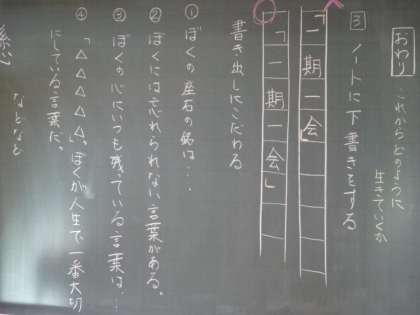 おわり これからどのように
生きていくか
3 ノートに下書きをする
「一期一会」
「一期一会」
書き出しにこだわる
① ぼくの座右の銘は・・
② ぼくには忘れられない言葉がある。
③ ぼくの心にいつも残っている言葉は・・・
④ 「△△△△△」。ぼくが人生で一番大切
にしている言葉だ。
などなど